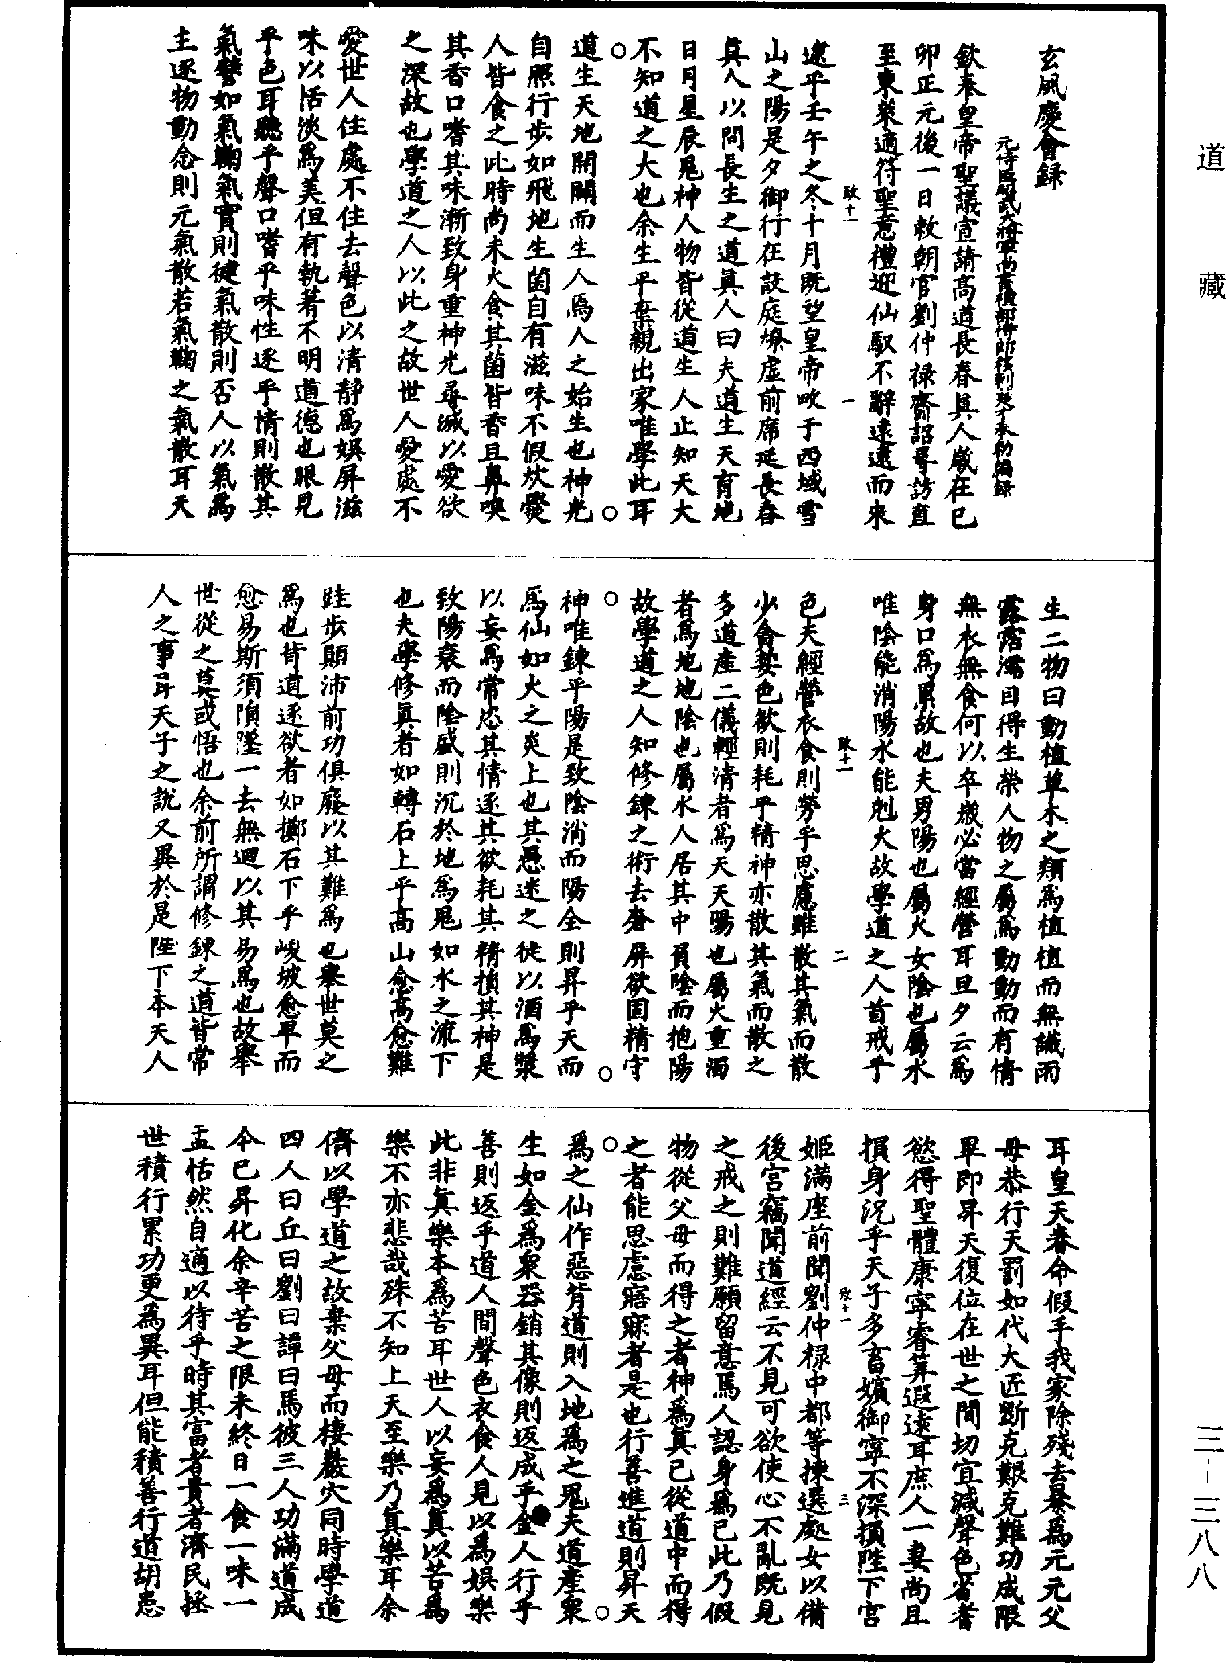 道藏
玄風慶會錄
元侍臣昭武大將軍尚書禮部侍郎移剌楚才奉勑編錄
欽奉皇帝聖議宣請高道長春真人歲在己
卯正元後一日敕朝官劉仲祿齎詔尋訪直
至東萊適符聖意禮迎仙馭不辭遠遠而來
逮乎壬午之冬十月既望皇帝畋于西域雪
山之陽是夕御行在設庭燎虛前席延長春
真人以問長生之道真人曰夫道生天育地
日月星辰鬼神人物皆從道生人止知天大
不知道之大也余生平棄親出家唯學此耳
道生天地開闢而生人焉人之始生也神光
自照行步如飛地生菌自有滋味不假炊爨
人皆食之此時尚未火食其菌皆香且鼻嗅
其香口嗜其味漸致身重神光尋滅以愛欲
之深故也學道之人以此之故世人愛處不
愛世人住處不住去聲色以清靜為娛屏滋
味以恬淡為美但有執著不明道德也眼見
乎色耳聽乎聲口嗜乎味性逐乎情則散其
氣譬如氣鞠氣實則健氣散則否人以氣為
主逐物動念則元氣散若氣鞠之氣散耳天
生二物曰動植草木之類為植植而無識雨
露霑濡自得生榮人物之屬為動動而有情
無衣無食何以卒歲必當經營耳旦夕云為
身口為累故也夫男陽也屬火女陰也屬水
唯陰能消陽水能剋火故學道之人首戒乎
色夫經營衣食則勞乎思慮雖散其氣而散
少貪婪色欲則耗乎精神亦散其氣而散之
多道產二儀輕清者為天天陽也屬火重濁
者為地地陰也屬水人居其中負陰而抱陽
故學道之人知修鍊之術去奢屏欲固精守
神唯鍊乎陽是致陰消而陽全則昇乎天而
為仙如火之炎上也其愚迷之徒以酒為漿
以妄為常恣其情逐其欲耗其精損其神是
致陽衰而陰盛則沉於地為鬼如水之流下
也夫學修真者如轉石上乎高山愈高愈難
跬步顛沛前功俱廢以其難為也舉世莫之
為也背道逐欲者如擲石下乎峻坡愈卑而
愈易斯須隕墜一去無迴以其易為也故舉
世從之莫或悟也余前所謂修鍊之道皆常
人之事耳天子之說又異於是陛下本天人
耳皇天眷命假手我家除殘去暴為元元父
母恭行天罰如代大匠斷克艱克難功成限
畢即昇天復位在世之間切宜減聲色省嗜
慾得聖體康寧睿算遐遠耳庶人一妻尚且
損身況乎天子多畜嬪御寧不深損陛下宮
姬滿座前聞劉仲祿中都等揀選處女以備
後宮竊聞道經云不見可欲使心不亂既見
之戒之則難願留意焉人認身為己此乃假
物從父母而得之者神為真已從道中而得
之者能思慮寤寐者是也行善進道則昇天
為之仙作惡背道則入地為之鬼夫道產眾
生如金為眾器銷其像則返成乎金人行乎
善則返乎道人間聲色衣食人見以為娛樂
此非真樂本為苦耳世人以妄為真以苦為
樂不亦悲哉殊不知上天至樂乃真樂耳余
儕以學道之故棄父母而棲巖穴同時學道
四人曰丘曰劉曰譚曰馬彼三人功滿道成
今已昇化余辛苦之限未終日一食一味一
盂恬然自適以待乎時其富者貴者濟民拯
世積行累功更為異耳但能積善行道胡患
致十一
一
致十一
二
致十一
三
三-三八八